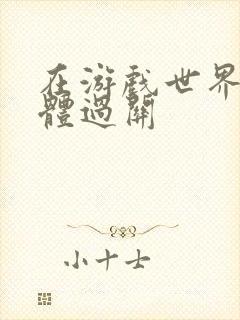 在游戲世界
體過關
小十士